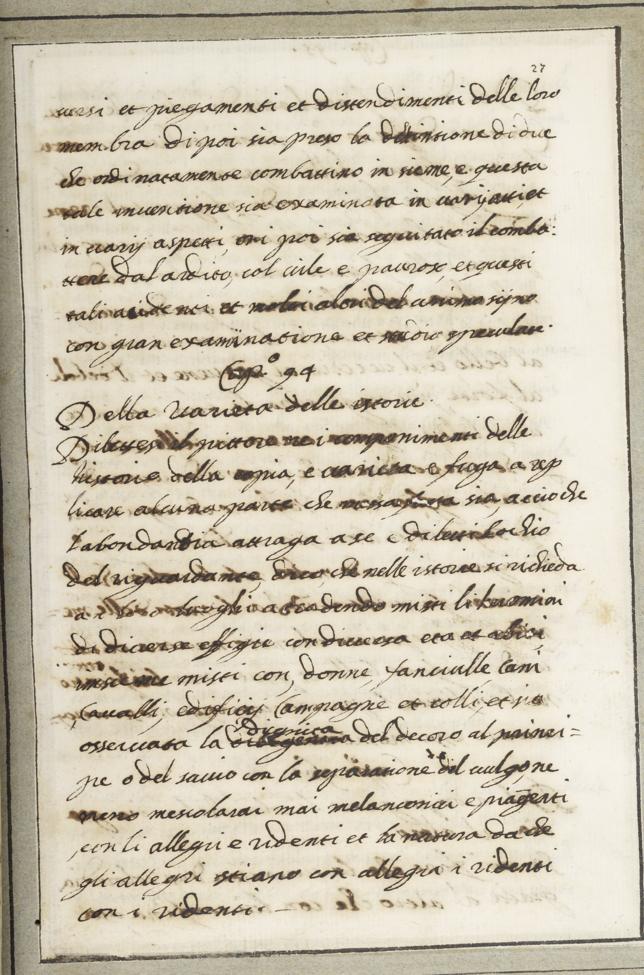 27
versi et piegamenti et distendimenti delle loro
membra di poi sia preso la detintione di due
che ordinatamente combattino insieme, e questa
tale inventione sia examinata in varij atti, et
in varij aspetti, poi sia seguitato il comba:
ttere dal ardito, col vile e pauroso, et questi
tali acidenti et molti altri del animo sijno
con gran examinatione et studio speculate.
Cap.º 94
Della Varieta delle istorie.
Dilettesi il pittore ne i componimenti delle
historie della copia, e varieta e fuga a rep
licare alcuna parte che sia, accioche
labondantia attraga a se e diletti lochio
del riguardante, dico che nelle istorie si richieda
luoghi acadendo misti li huomini
di diverse effigie con diversa eta et abiti
insieme misti con, donne, fanciulle Cani
Cavalli, edifitij Campagne et colli, et sia
osservata la dignita del decoro al princi=
pe o del savio con la separatione del vulgo, ne
meno mescolarai mai melanconici e piagenti
con li allegri e ridenti et la natura da che
gli allegri stiano con allegri i ridenti
con i ridenti —